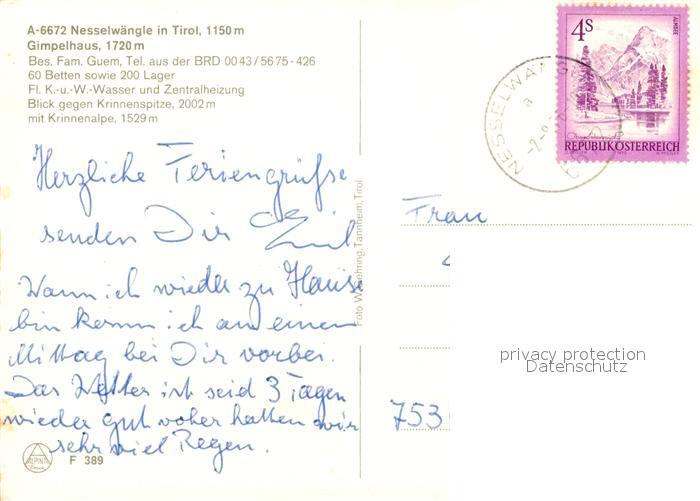 A-6672 Nesselwängle in Tirol, 1150 m
Gimpelhaus, 1720 m
Bes. Fam. Guem, Tel. aus der BRD 00 43 / 56 75 - 426
60 Betten sowie 200 Lager
Fl. K.-u.-W.-Wasser und Zentralheizung
Blick gegen Krinnenspitze, 2002 m
mit Krinnenalpe, 1529 m
Herzliche Feriengrüsse
senden Dir
Wann ich wieder zu Hause
bin komm ich an einem
Mittag bei Dir vorbei.
Das Wetter ist seid 3 Tagen
wieder gut voher hatten wir
sehr viel Regen.
ALPINA
F 389
Tannheim, Tirol
4S
ALMSEE
REPUBLIK ÖSTERREICH
NESSELWÄNG
Frau
753
privacy protection
Datenschutz